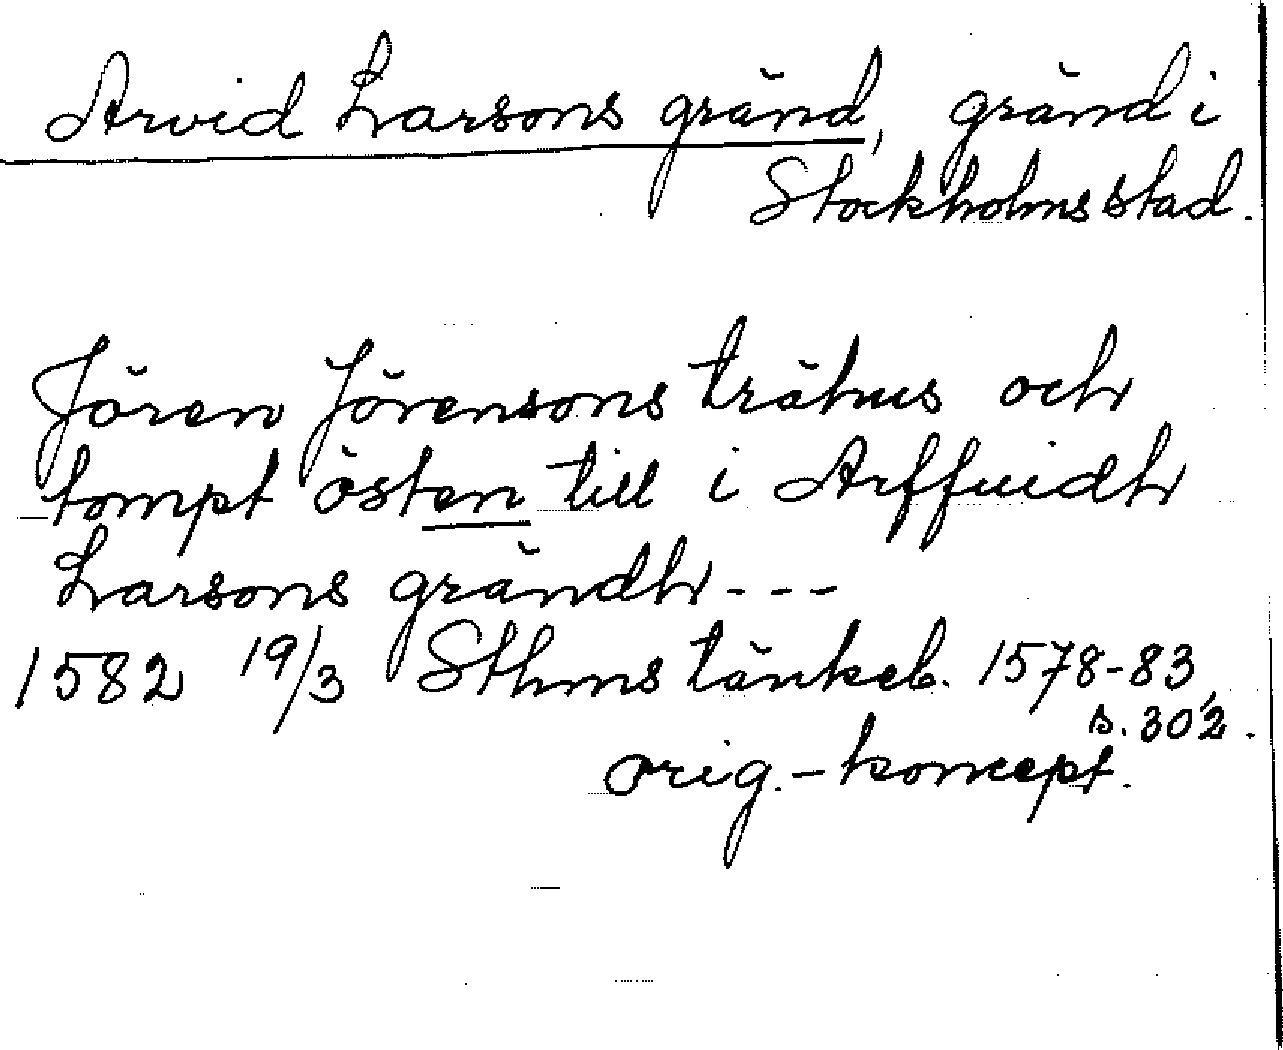 Arvid Larsons gränd, gränd i
Stockholms stad.
Jören Jörensons trähus och
tompt östen till i Arffuidh
Larsons grändh - - -
1582 19/3 Sthms tänkeb. 1578-83,
s. 302.
orig.-koncept.